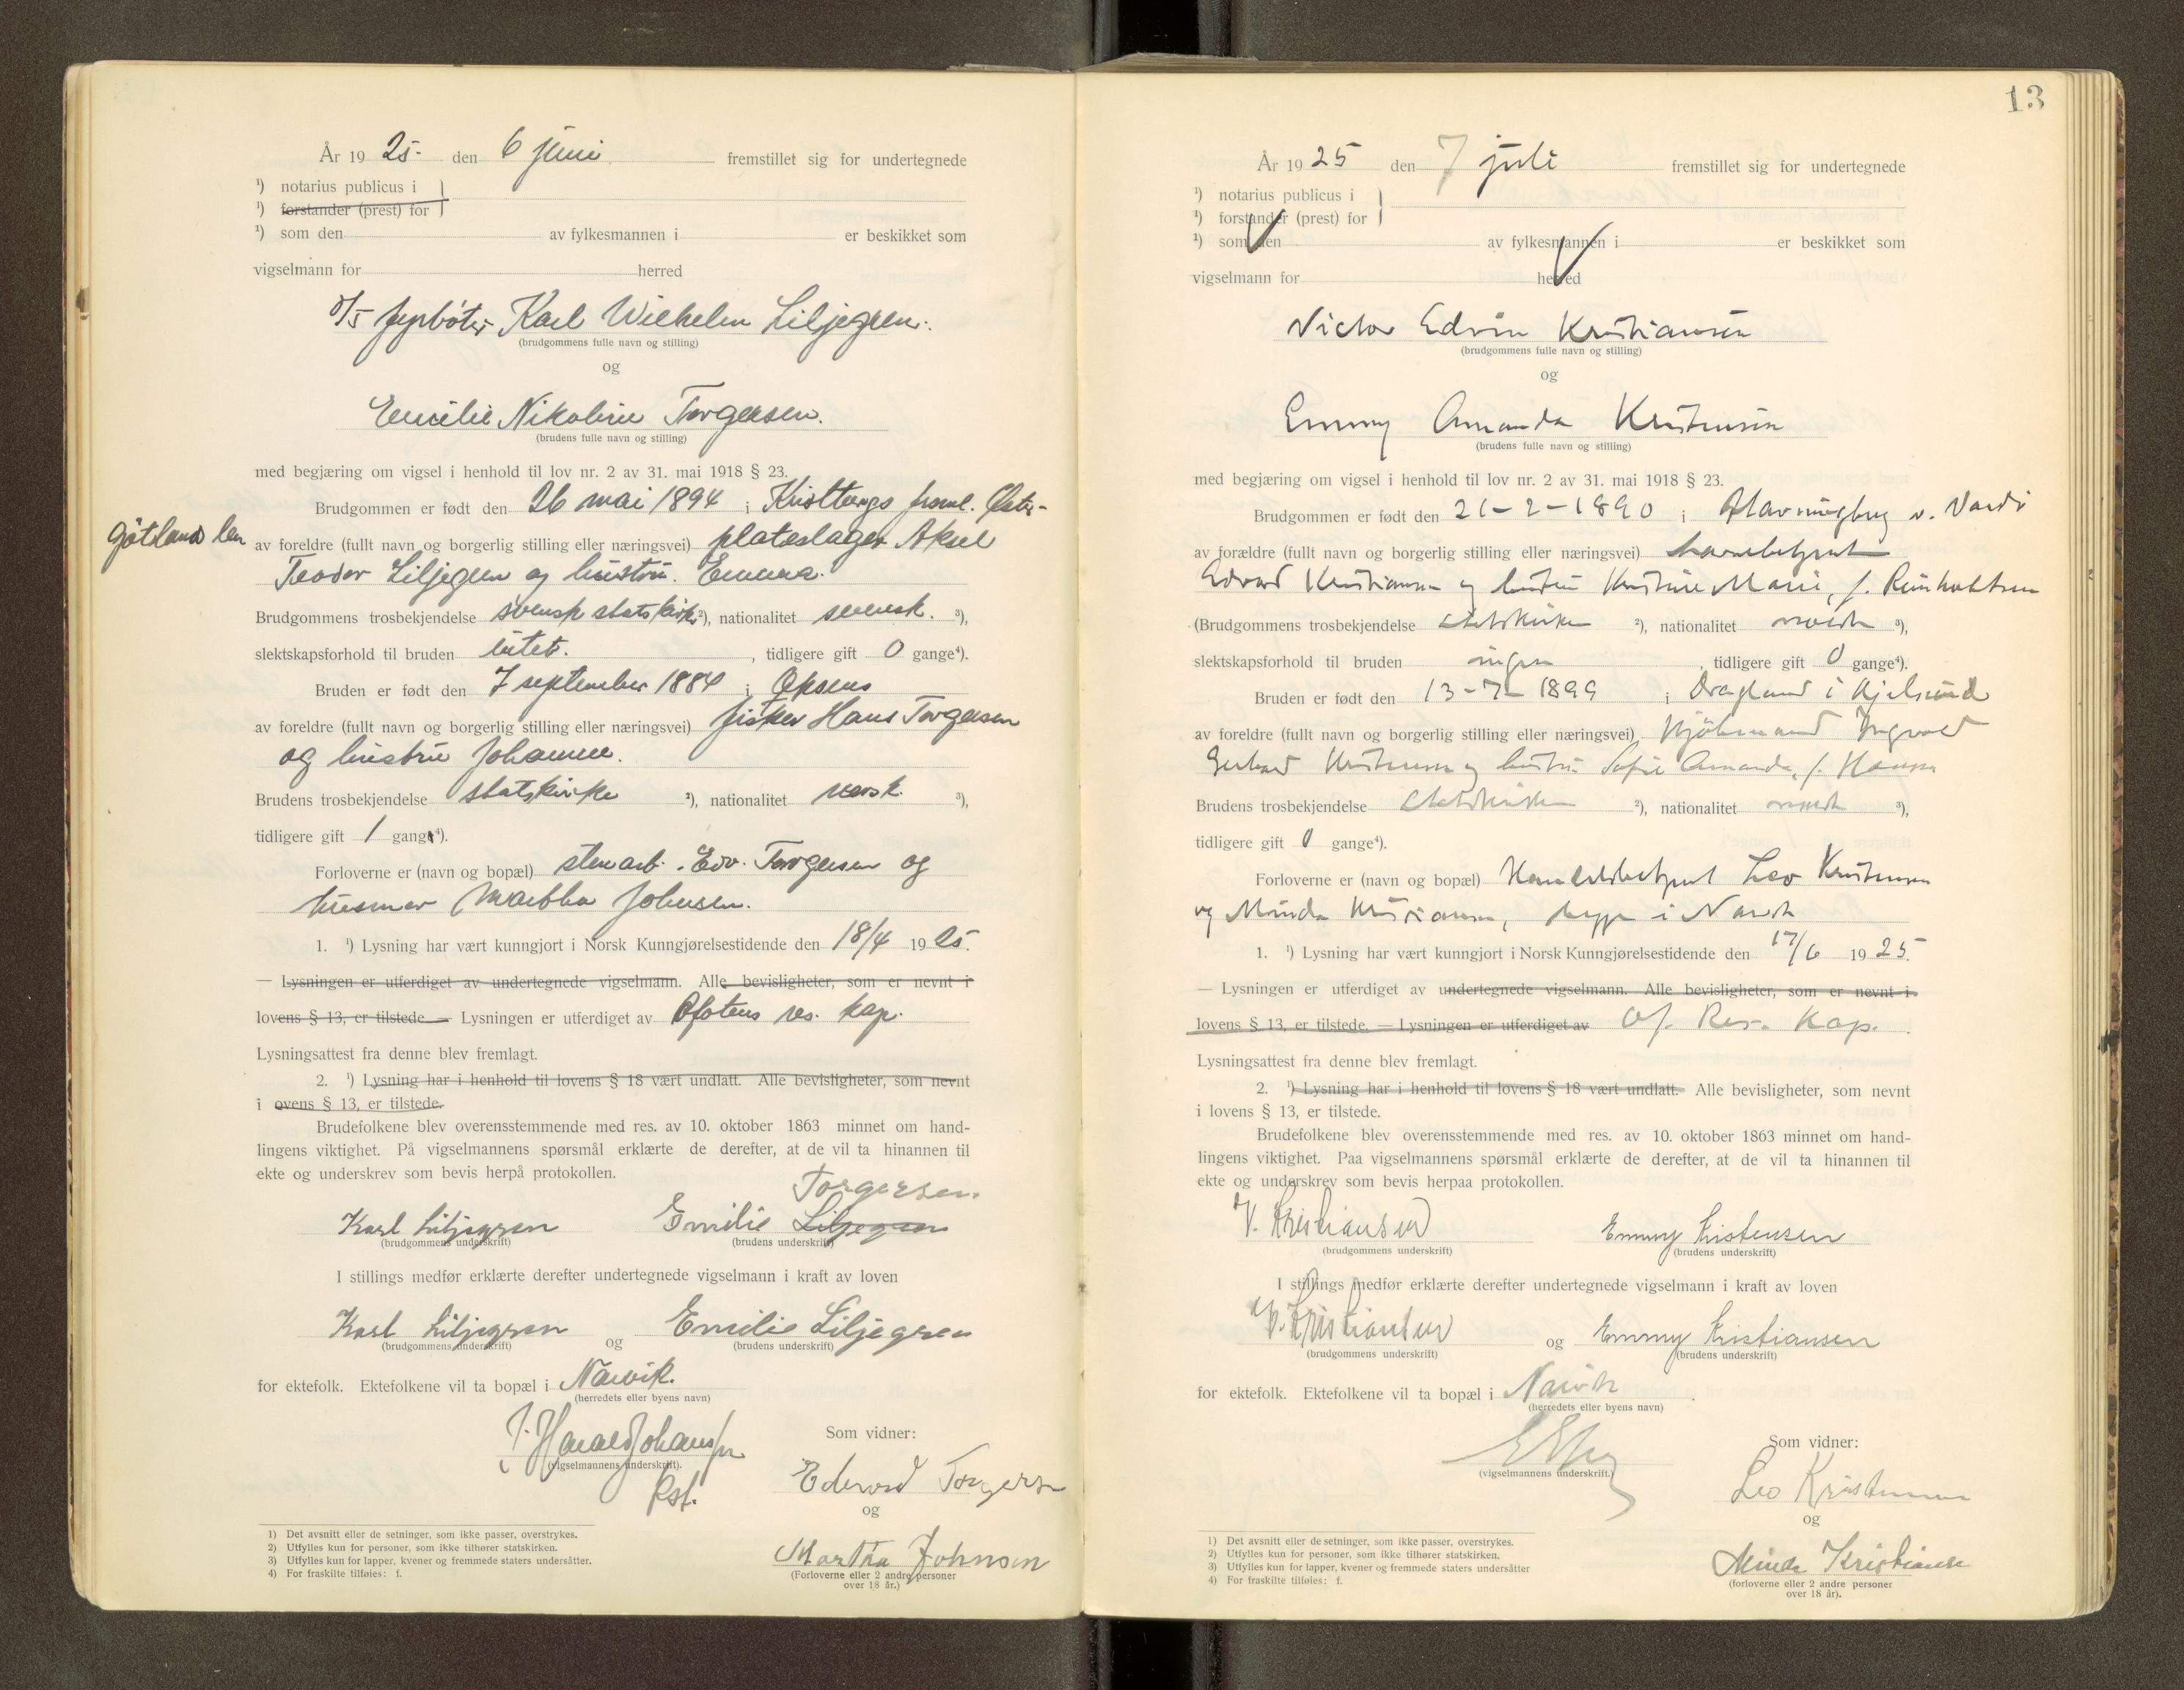 År 19 25- den 6 juni fremstillet sig for undertegnede
¹) notarius publicus i
¹) forstander (prest) for
¹) som den av fylkesmannen i er beskikket som
vigselmann for herred
fyrbøter Karl Wilhelm Liljegren.
(brudgommens fulle navn og stilling)
og
Emilie Nikoline Torgersen.
(brudens fulle navn og stilling)
med begjæring om vigsel i henhold til lov nr. 2 av 31. mai 1918 § 23.
Brudgommen er født den 26 mai 1894 i Kristbergs Øster-
götland len
av foreldre (fullt navn og borgerlig stilling eller næringsvei) plateslager Aksel
Teodor Liljegren og hustru Emma.
Brudgommens trosbekjendelse svensk statskirke ²), nationalitet svensk. ³),
slektskapsforhold til bruden intet. , tidligere gift 0 gange⁴).
Bruden er født den 7 september 1884 i
av foreldre (fullt navn og borgerlig stilling eller næringsvei) fisker Hans Torgersen
og hustru Johanne.
Brudens trosbekjendelse statskirke ²), nationalitet norsk. ³),
tidligere gift 1 gang⁴).
Forloverne er (navn og bopæl) stenarb. Edv. Torgersen og
husmor Martha Johnsen.
1. ¹) Lysning har vært kunngjort i Norsk Kunngjørelsestidende den 18/4 19 25.
— Lysningen er utferdiget av undertegnede vigselmann. Alle bevisligheter, som er nevnt i
lovens § 13, er tilstede. — Lysningen er utferdiget av Ofotens res. kap.
Lysningsattest fra denne blev fremlagt.
2. ¹) Lysning har i henhold til lovens § 18 vært undlatt. Alle bevisligheter, som nevnt
i ovens § 13, er tilstede.
Brudefolkene blev overensstemmende med res. av 10. oktober 1863 minnet om hand-
lingens viktighet. På vigselmannens spørsmål erklærte de derefter, at de vil ta hinannen til
ekte og underskrev som bevis herpå protokollen.
Torgersen.
Karl Liljegren Emilie Liljegren
(brudgommens underskrift) (brudens underskrift)
I stillings medfør erklærte derefter undertegnede vigselmann i kraft av loven
Karl Liljegren og Emilie Liljegren
(brudgommens underskrift) (brudens underskrift)
for ektefolk. Ektefolkene vil ta bopæl i Narvik.
(herredets eller byens navn)
J. Harald Johansen
(vigselmannens underskrift).
kst.
Som vidner:
Edvard Torgersen
og
Martha Johnsen
(Forloverne eller 2 andre personer
over 18 år.)
1) Det avsnitt eller de setninger, som ikke passer, overstrykes.
2) Utfylles kun for personer, som ikke tilhører statskirken.
3) Utfylles kun for lapper, kvener og fremmede staters undersåtter.
4) For fraskilte tilføies: f.
13
År 19 25 den 7 juli fremstillet sig for undertegnede
¹) notarius publicus i
¹) forstander (prest) for
¹) som den av fylkesmannen i er beskikket som
vigselmann for herred
Victor Edvin Kristiansen
(brudgommens fulle navn og stilling)
og
Emmy Amanda Kristensen
(brudens fulle navn og stilling)
med begjæring om vigsel i henhold til lov nr. 2 av 31. mai 1918 § 23.
Brudgommen er født den 21-2-1890 i
av forældre (fullt navn og borgerlig stilling eller næringsvei) havnebetjent
Edvard Kristiansen og hustru Kristine Marie, f. Reinholtsen
(Brudgommens trosbekjendelse statskirken ²), nationalitet norsk ³),
slektskapsforhold til bruden ingen , tidligere gift 0 gange⁴).
Bruden er født den 13-7-1899 i Dragland i Kjelsund
av foreldre (fullt navn og borgerlig stilling eller næringsvei) Ingvald
Gerhard Kristensen og hustru Sofie Amanda, f. Hansen
Brudens trosbekjendelse Statskirken ²), nationalitet norsk ³),
tidligere gift 0 gange⁴).
Forloverne er (navn og bopæl) Handelsbetjent Leo Kristensen
og Minda Kristiansen, begge i Narvik
1. ¹) Lysning har vært kunngjort i Norsk Kunngjørelsestidende den 17/6 19 25.
— Lysningen er utferdiget av undertegnede vigselmann. Alle bevisligheter, som er nevnt i
lovens § 13, er tilstede. — Lysningen er utferdiget av Of. Res. Kap.
Lysningsattest fra denne blev fremlagt.
2. ¹) Lysning har i henhold til lovens § 18 vært undlatt. Alle bevisligheter, som nevnt
i lovens § 13, er tilstede.
Brudefolkene blev overensstemmende med res. av 10. oktober 1863 minnet om hand-
lingens viktighet. Paa vigselmannens spørsmål erklærte de derefter, at de vil ta hinannen til
ekte og underskrev som bevis herpaa protokollen.
V. Kristiansen Emmy Kristensen
(brudgommens underskrift) (brudens underskrift)
I stillings medfør erklærte derefter undertegnede vigselmann i kraft av loven
V. Kristiansen og Emmy Kristiansen
(brudgommens underskrift) (brudens underskrift)
for ektefolk. Ektefolkene vil ta bopæl i Narvik
(herredets eller byens navn)
(vigselmannens underskrift.)
Som vidner:
Leo Kristensen
og
Minda Kristiansen
(forloverne eller 2 andre personer
over 18 år).
1) Det avsnitt eller de setninger, som ikke passer, overstrykes.
2) Utfylles kun for personer, som ikke tilhører statskirken.
3) Utfylles kun for lapper, kvener og fremmede staters undersåtter
4) For fraskilte tilføies: f.